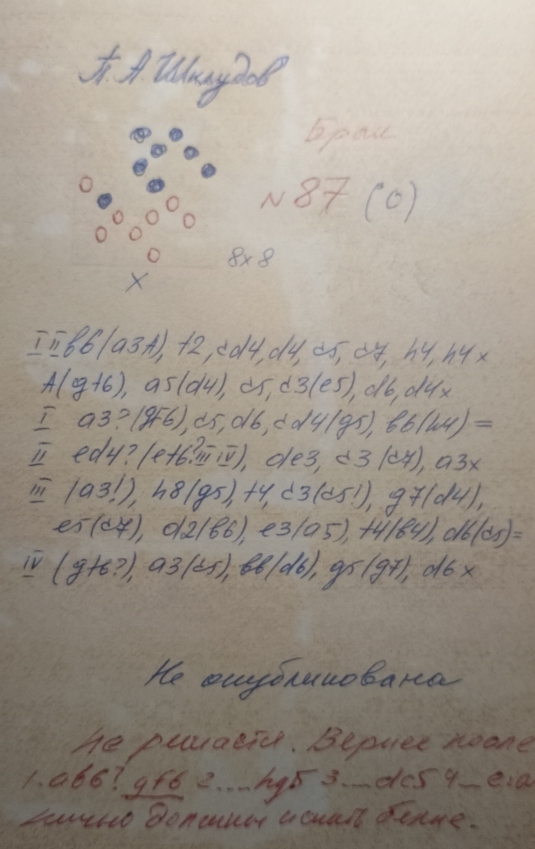 П. А. Шклудов
Брак
N 87 (0)
8x8
X
I II b6 (a3A), f2, cd4, d4, c5, c7, h4, h4x
A(gf6), a5(d4), c5, c3(e5), d6, d4x
I a3? (gf6), c5, d6, cd4(g5), b6(h4) =
II ed4? (ef6? III IV), de3, c3(c7), a3x
III (a3!), h8(g5), f4, c3(c5!), g7(d4),
e5(c7), d2(b6), e3(a5), f4(b4), d6(c5)=
IV (gf6?), a3(c5), b6(d6), g5(g7), d6x
Не опубликована
Не решается. Вернее после
1. ab6? gf6 2.... hg5 3.... dc5 4...
ничью должны искать белые.